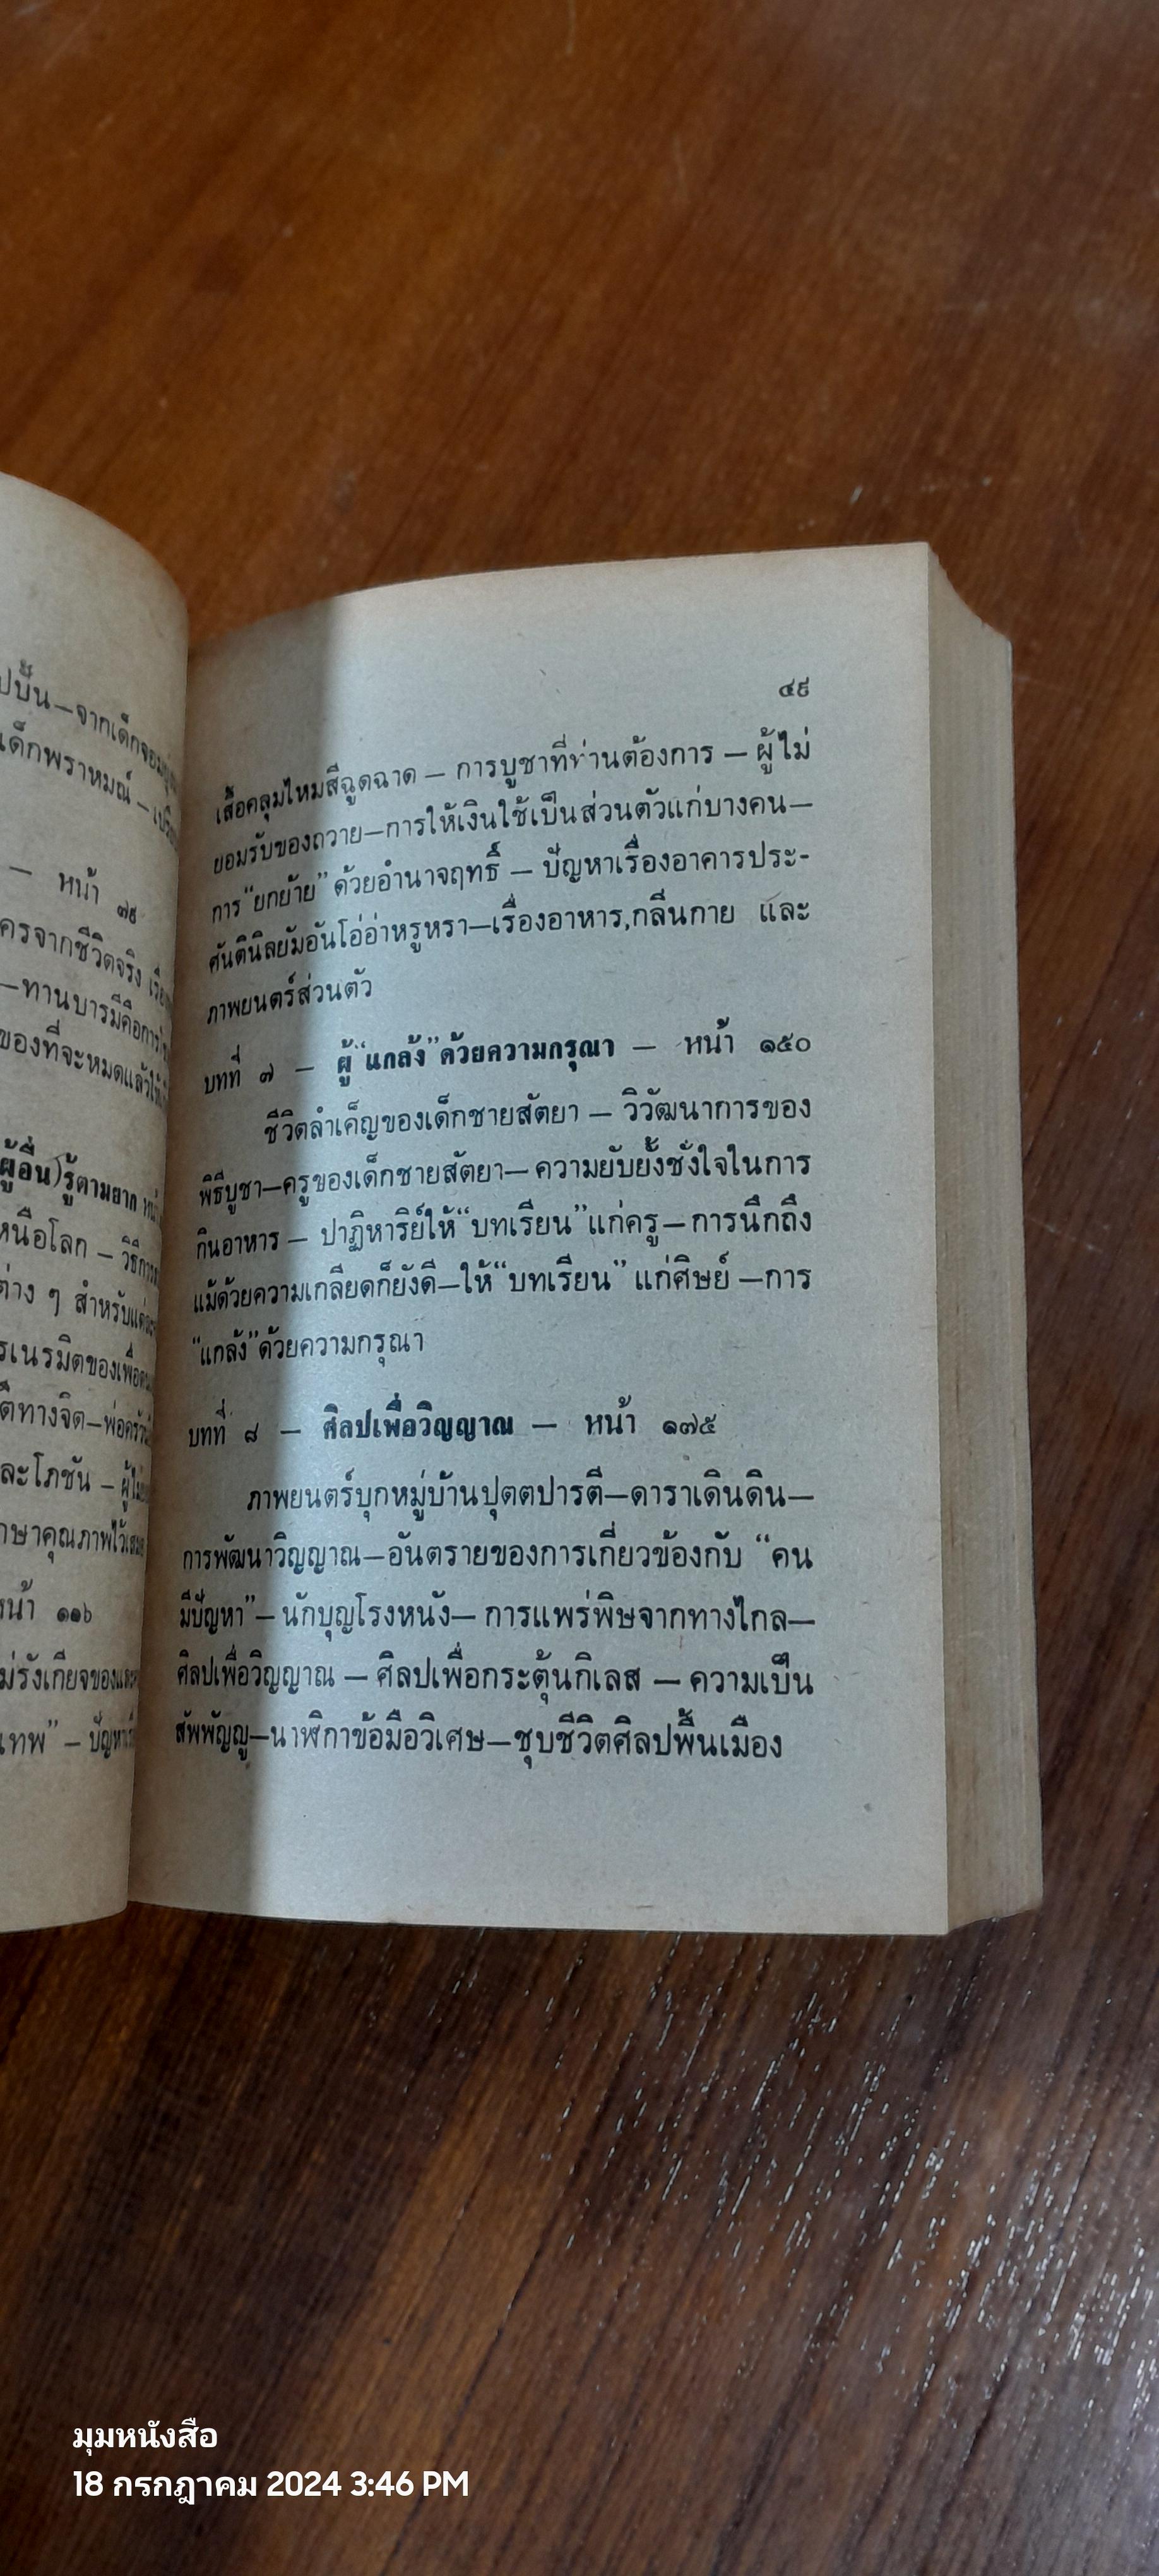 ปปั้น—จากเด็กจอม
เด็กพราหมณ์ —
— หน้า ๗๙
ครจากชีวิตจริง
—ทานบารมีคือการ
ของที่จะหมดแล้ว
ผู้อื่น)รู้ตามยาก
หนือโลก — วิธีการ
ต่าง ๆ สำหรับ
รเนรมิตของเพื่อ
ติทางจิต—พ่อครัว
ละโภชัน — ผู้ไม่
กษาคุณภาพไว้
หน้า ๑๑๖
ม่รังเกียจของ
เทพ” — ปัญหา
๔๙
เสื้อคลุมไหมสีฉูดฉาด — การบูชาที่ท่านต้องการ — ผู้ไม่
ยอมรับของถวาย—การให้เงินใช้เป็นส่วนตัวแก่บางคน—
การ “ยกย้าย” ด้วยอำนาจฤทธิ์ — ปัญหาเรื่องอาคารประ-
ศันตินิลยัมอันโอ่อ่าหรูหรา—เรื่องอาหาร,กลิ่นกาย และ
ภาพยนตร์ส่วนตัว
บทที่ ๗ — ผู้ “แกล้ง” ด้วยความกรุณา — หน้า ๑๕๐
ชีวิตลำเค็ญของเด็กชายสัตยา — วิวัฒนาการของ
พิธีบูชา—ครูของเด็กชายสัตยา— ความยับยั้งชั่งใจในการ
กินอาหาร — ปาฏิหาริย์ให้ “บทเรียน” แก่ครู — การนึกถึง
แม้ด้วยความเกลียดก็ยังดี—ให้ “บทเรียน” แก่ศิษย์ —การ
“แกล้ง” ด้วยความกรุณา
บทที่ ๘ — ศิลปเพื่อวิญญาณ — หน้า ๑๗๕
ภาพยนตร์บุกหมู่บ้านปุตตปารตี—ดาราเดินดิน—
การพัฒนาวิญญาณ—อันตรายของการเกี่ยวข้องกับ “คน
มีปัญหา”— นักบุญโรงหนัง— การแพร่พิษจากทางไกล—
ศิลปเพื่อวิญญาณ — ศิลปเพื่อกระตุ้นกิเลส — ความเป็น
สัพพัญญู—นาฬิกาข้อมือวิเศษ—ชุบชีวิตศิลปพื้นเมือง
มุมหนังสือ
18 กรกฎาคม 2024 3:46 PM